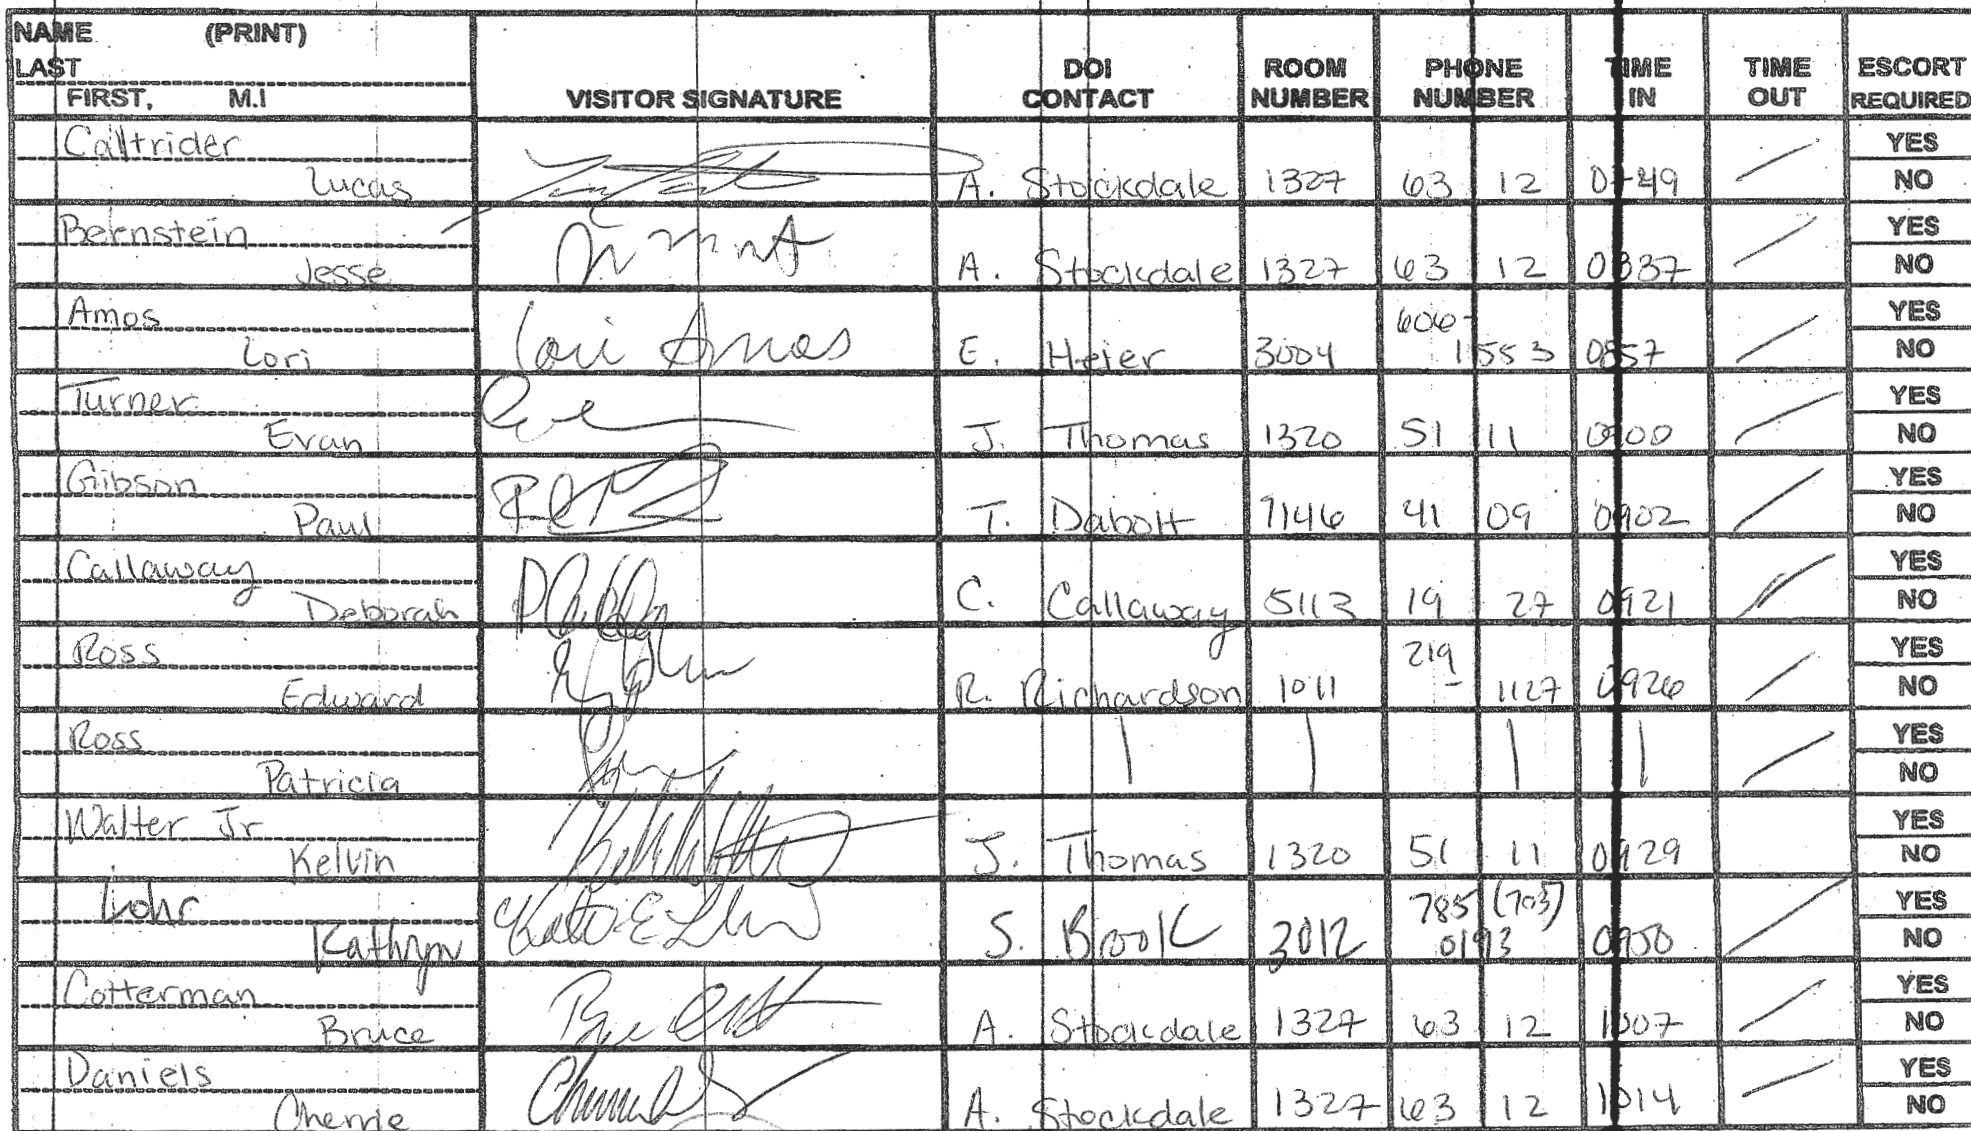 NAME (PRINT)
LAST
FIRST, M.I
VISITOR SIGNATURE
DOI CONTACT
ROOM NUMBER
PHONE NUMBER
TIME IN
TIME OUT
ESCORT REQUIRED
Calltrider YES
Lucas A. Stockdale 1327 63 12 0749 NO
Bernstein YES
Jesse A. Stockdale 1327 63 12 0837 NO
Amos 606- YES
Lori Lori Amos E. Heier 3004 1553 0857 NO
Turner YES
Evan J. Thomas 1320 51 11 0900 NO
Gibson YES
Paul T. Dabolt 7146 41 09 0902 NO
Callaway YES
Deborah C. Callaway 5113 19 27 0921 NO
Ross 219 YES
Edward R. Richardson 1011 - 1127 0926 NO
Ross YES
Patricia | | | | NO
Walter Jr YES
Kelvin J. Thomas 1320 51 11 0929 NO
Lohr 785 (703) YES
Kathryn S. Brook 3012 0193 0950 NO
Cotterman YES
Bruce A. Stockdale 1327 63 12 1007 NO
Daniels YES
Cherrie A. Stockdale 1327 63 12 1014 NO